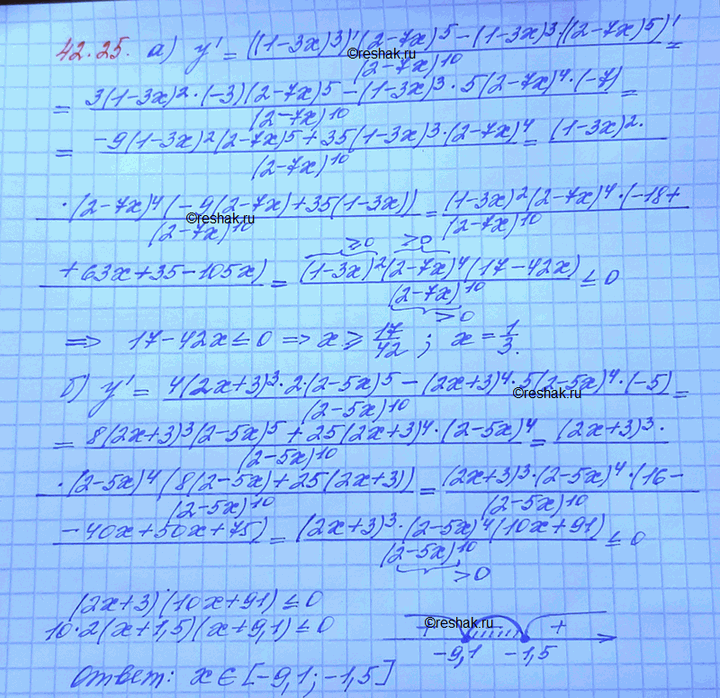 42.25. а) y' = ((1-3x)³)'(2-7x)⁵ - (1-3x)³·((2-7x)⁵)' / (2-7x)¹⁰ =
= 3(1-3x)²·(-3)(2-7x)⁵ - (1-3x)³·5(2-7x)⁴·(-7) / (2-7x)¹⁰ =
= -9(1-3x)²(2-7x)⁵ + 35(1-3x)³·(2-7x)⁴ / (2-7x)¹⁰ = (1-3x)²·
·(2-7x)⁴(-4(2-7x)+35(1-3x)) / (2-7x)¹⁰ = (1-3x)²(2-7x)⁴·(-18+ / (2-7x)¹⁰
+63x+35-105x) = (1-3x)²(2-7x)⁴(17-42x) / (2-7x)¹⁰ ≤ 0
≥0 ≥0 >0
⇒ 17-42x ≤ 0 ⇒ x ≥ 17/42 ; x = 1/3.
б) y' = 4(2x+3)³·2·(2-5x)⁵ - (2x+3)⁴·5(2-5x)⁴·(-5) / (2-5x)¹⁰ =
= 8(2x+3)³(2-5x)⁵ + 25(2x+3)⁴·(2-5x)⁴ / (2-5x)¹⁰ = (2x+3)³·
·(2-5x)⁴(8(2-5x)+25(2x+3)) / (2-5x)¹⁰ = (2x+3)³·(2-5x)⁴·(16- / (2-5x)¹⁰
-40x+50x+75) = (2x+3)³·(2-5x)⁴(10x+91) / (2-5x)¹⁰ ≤ 0
>0
(2x+3)(10x+91) ≤ 0
10·2(x+1,5)(x+9,1) ≤ 0
+ +
-9,1 -1,5
Ответ: x ∈ [-9,1; -1,5]
©reshak.ru
©reshak.ru
©reshak.ru
©reshak.ru